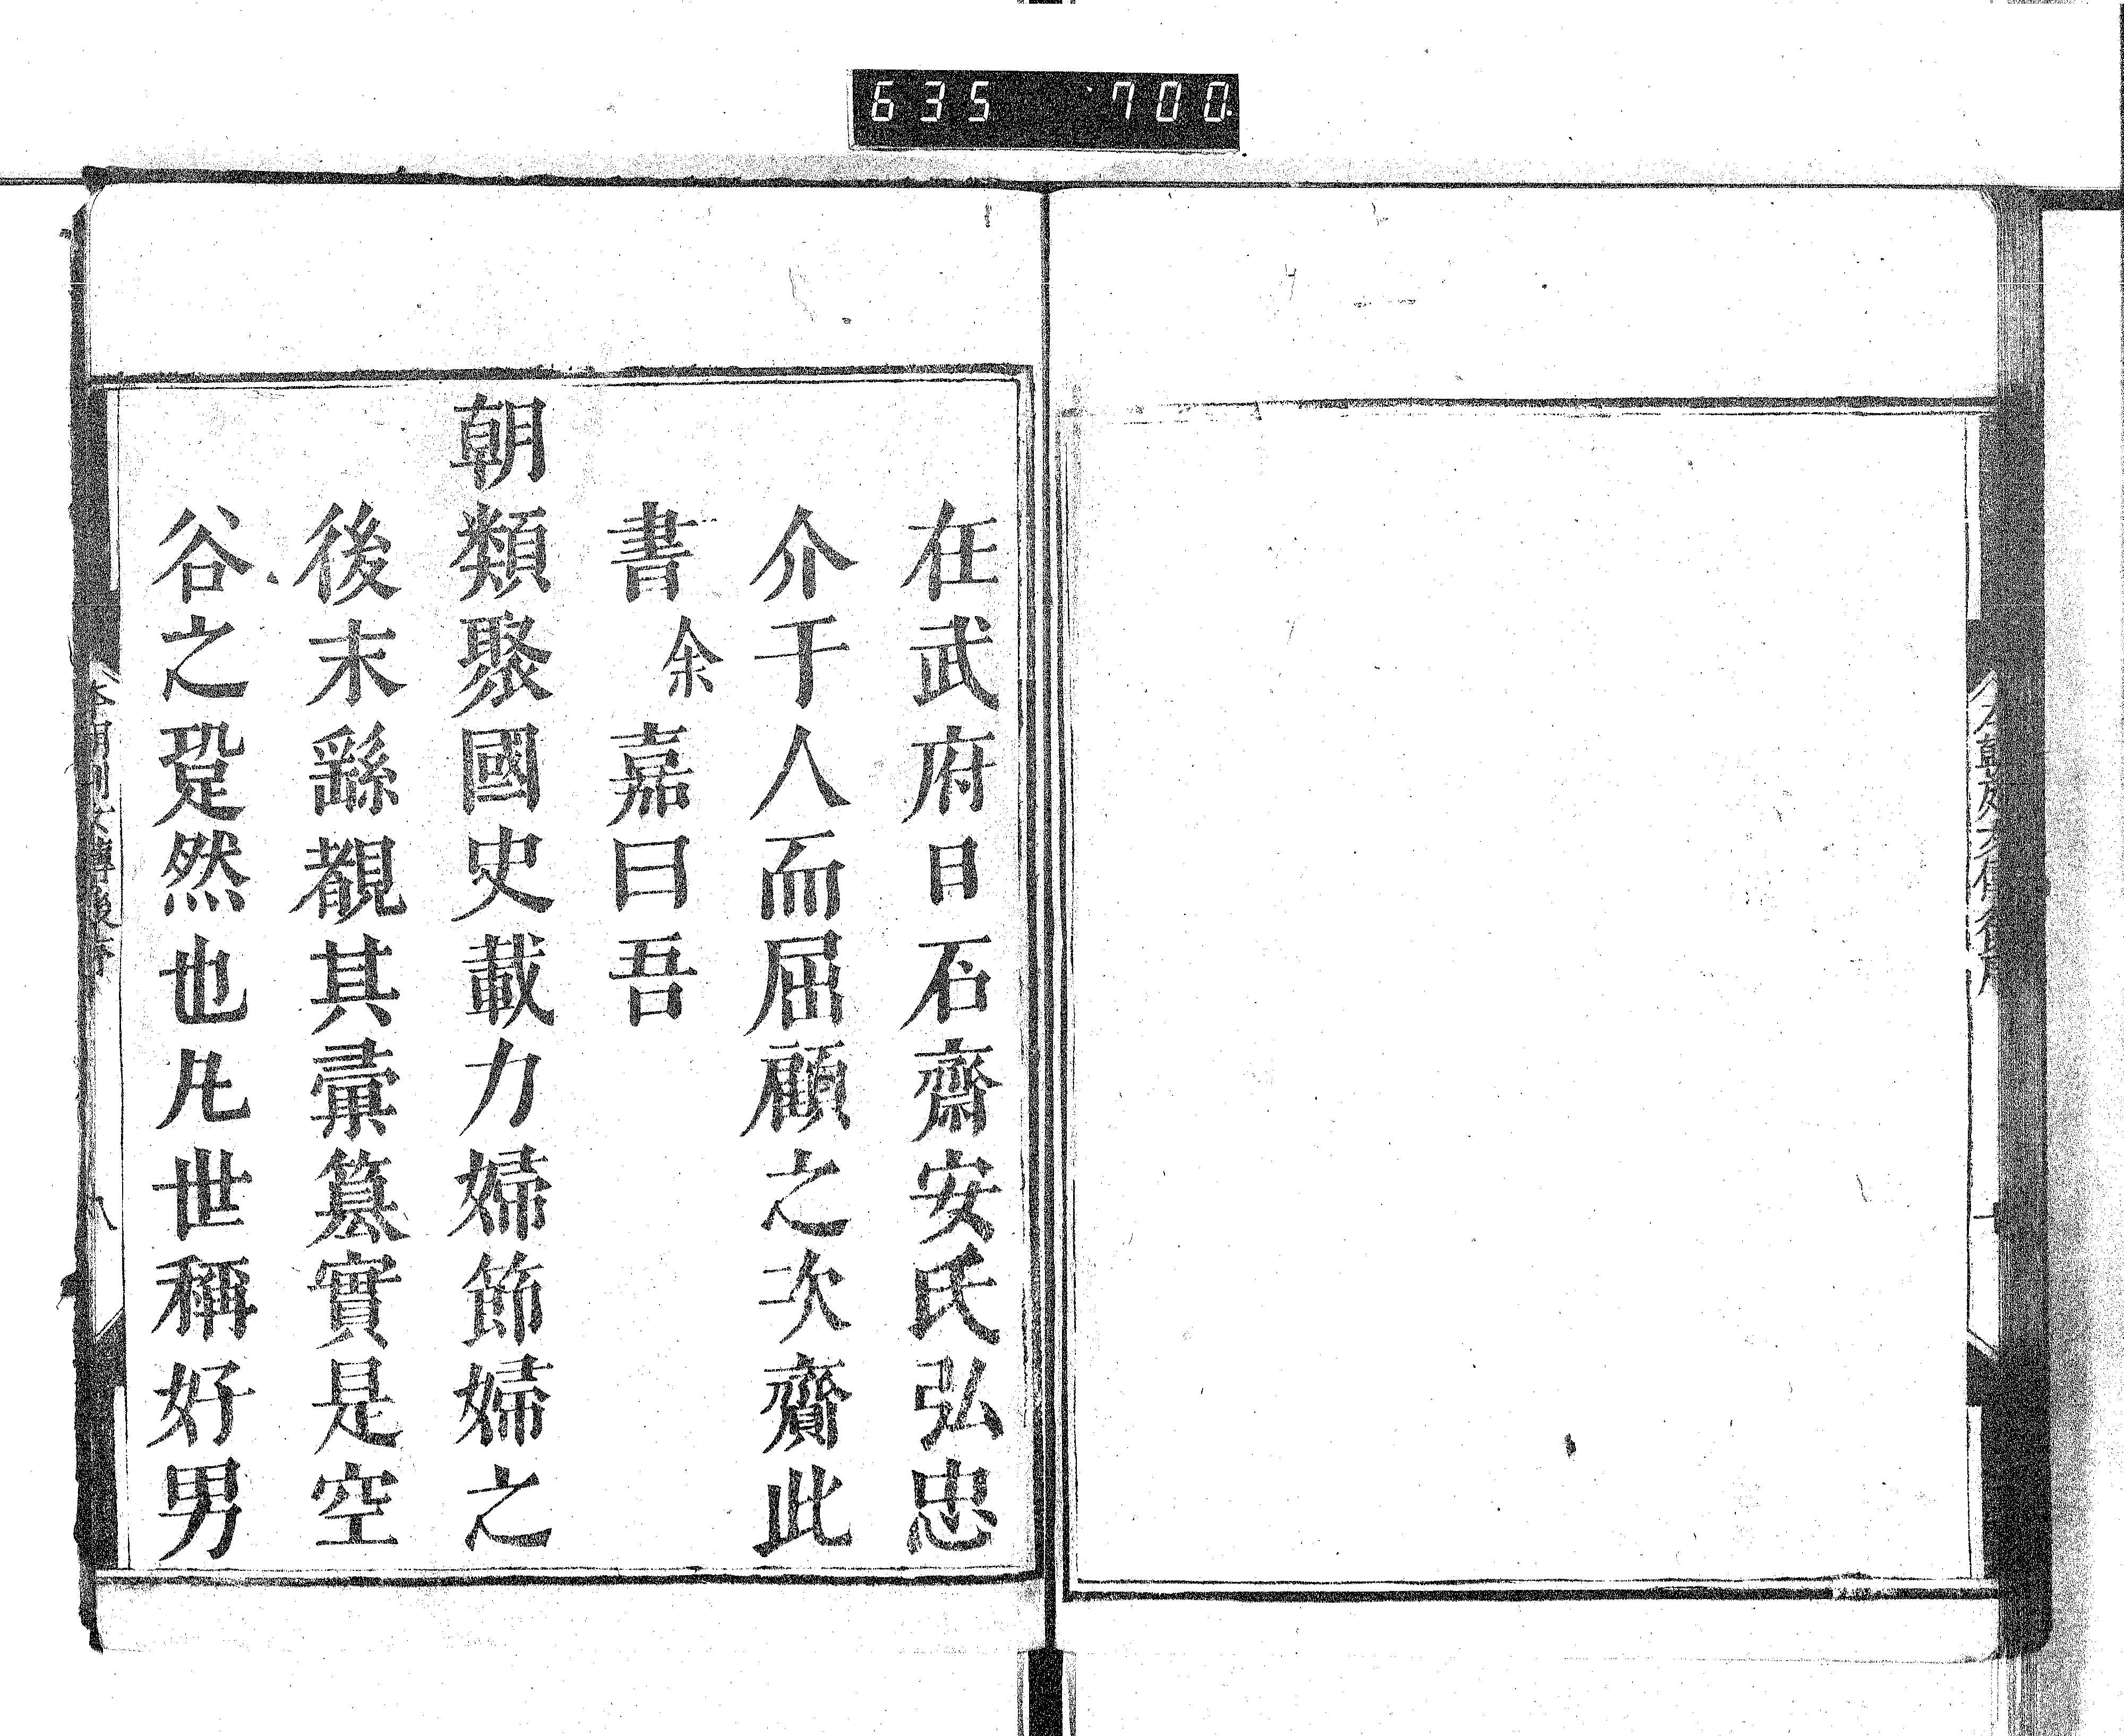 635 700
在武府日石齋安氏弘忠
介于人而屈顧之次齎此
書余嘉曰吾
朝類聚國史載力婦節婦之
後末繇覩其彙篡實是空
谷之跫然也凡世稱好男
本朝列女傳後序
八